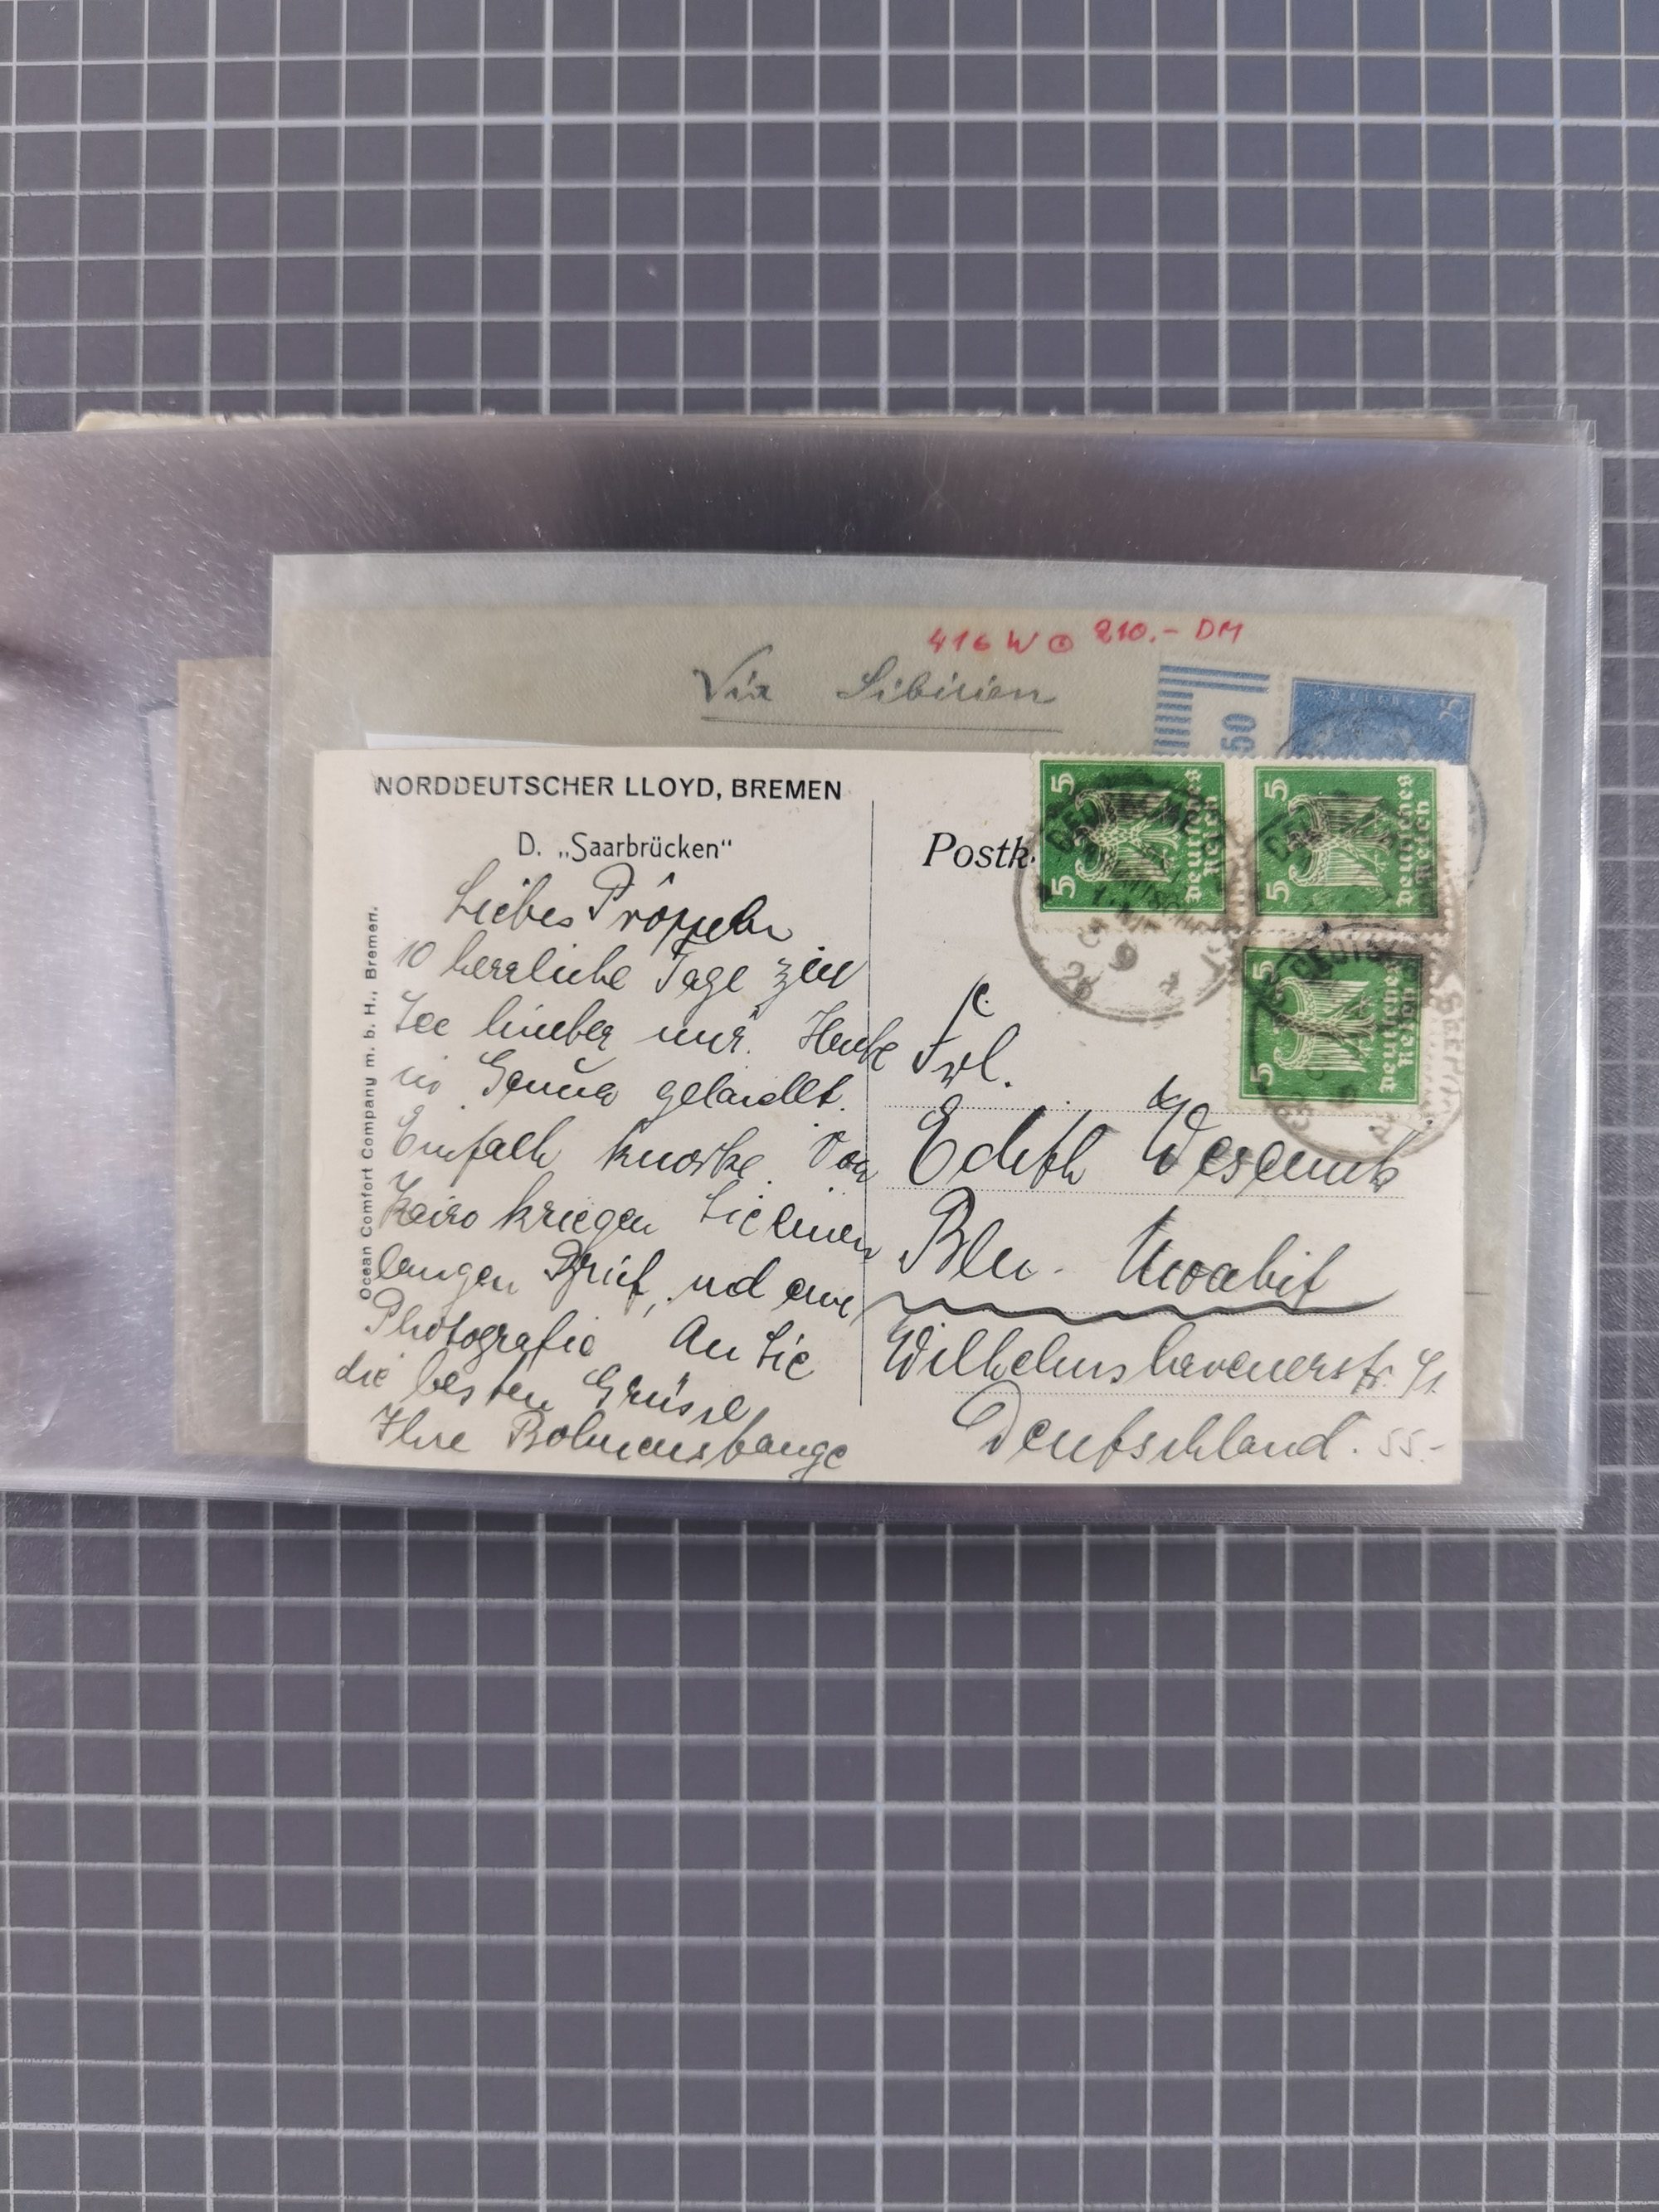 416 W ⊙ 210.- DM
Via Sibirien
50
25
NORDDEUTSCHER LLOYD, BREMEN
D. „Saarbrücken“
Ocean Comfort Company m. b. H., Bremen.
Liebes
10 herrliche Tage zur
See hinter mir. Heute
in Genua gelandet.
Einfach knorke. Von
Kairo kriegen Sie einen
langen Brief, und eine
Photografie An Sie
die besten Grüsse,
Ihre
Postk
5 5 Deutsches Reich
5 5 Deutsches Reich
5 5 Deutsches Reich
Frl.
Edith
Bln. Moabit
Wilhelmshavenerstr.
Deutschland.
55.-